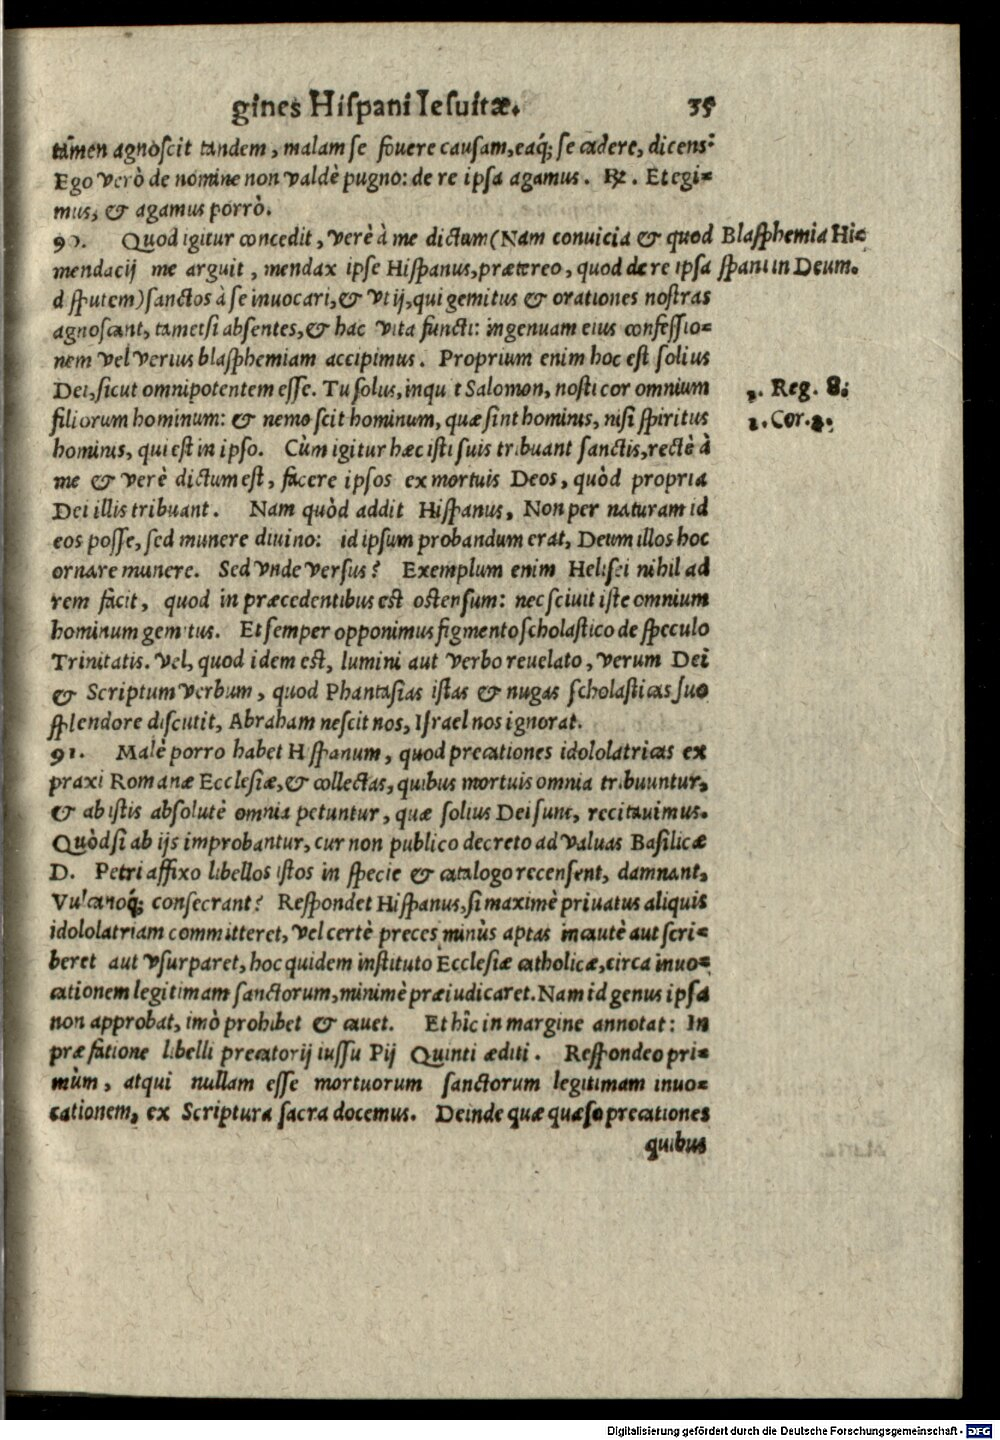 gines Hiſpani Ieſuitæ. 35
tamen agnoſcit tandem, malam ſe fouere cauſam, eaq́; ſe cadere, dicens:
Ego verò de nomine non valdè pugno: de re ipſa agamus. ℞. Et egi-
mus, & agamus porrò.
90. Quod igitur concedit, verè à me dictum (Nam conuicia & quod
mendacij me arguit, mendax ipſe Hiſpanus, prætereo, quod de re ipſa
diſputem) ſanctos à ſe inuocari, & vt ij, qui gemitus & orationes noſtras
agnoſcant, tametſi abſentes, & hac vita functi: ingenuam eius confeſſio-
nem vel verius blaſphemiam accipimus. Proprium enim hoc eſt ſolius
Dei, ſicut omnipotentem eſſe. Tu ſolus, inquit Salomon, noſti cor omnium
filiorum hominum: & nemo ſcit hominum, quæ ſint hominis, niſi ſpiritus
hominis, qui eſt in ipſo. Cùm igitur hæc iſti ſuis tribuant ſanctis, rectè à
me & verè dictum eſt, facere ipſos ex mortuis Deos, quòd propria
Dei illis tribuant. Nam quòd addit Hiſpanus, Non per naturam id
eos poſſe, ſed munere diuino: id ipſum probandum erat, Deum illos hoc
ornare munere. Sed vnde verſus? Exemplum enim Heliſei nihil ad
rem facit, quod in præcedentibus eſt oſtenſum: nec ſciuit iſte omnium
hominum gemitus. Et ſemper opponimus figmento ſcholaſtico de ſpeculo
Trinitatis. Vel, quod idem eſt, lumini aut verbo reuelato, verum Dei
& Scriptum verbum, quod Phantaſias iſtas & nugas ſcholaſticas ſuo
ſplendore diſcutit, Abraham neſcit nos, Iſrael nos ignorat.
91. Malè porro habet Hiſpanum, quod precationes idololatricas ex
praxi Romanæ Eccleſiæ, & collectas, quibus mortuis omnia tribuuntur,
& ab iſtis abſolutè omnia petuntur, quæ ſolius Dei ſunt, recitauimus.
Quòdſi ab ijs improbantur, cur non publico decreto ad valuas Baſilicæ
D. Petri affixo libellos iſtos in ſpecie & catalogo recenſent, damnant,
Vulcanoq́; conſecrant? Reſpondet Hiſpanus, ſi maximè priuatus aliquis
idololatriam committeret, vel certè preces minùs aptas incautè aut ſcri-
beret aut vſurparet, hoc quidem inſtituto Eccleſiæ catholicæ, circa inuo-
cationem legitimam ſanctorum, minimè præiudicaret. Nam id genus ipſa
non approbat, imò prohibet & cauet. Et hîc in margine annotat: In
præfatione libelli precatorij iuſſu Pij Quinti æditi. Reſpondeo pri-
mùm, atqui nullam eſſe mortuorum ſanctorum legitimam inuo-
cationem, ex Scriptura ſacra docemus. Deinde quæ quæſo precationes
quibus
Blaſphemia Hi-
ſpani in Deum.
3. Reg. 8.
1. Cor. 2.
Digitalisierung gefördert durch die Deutsche Forschungsgemeinschaft - DFG